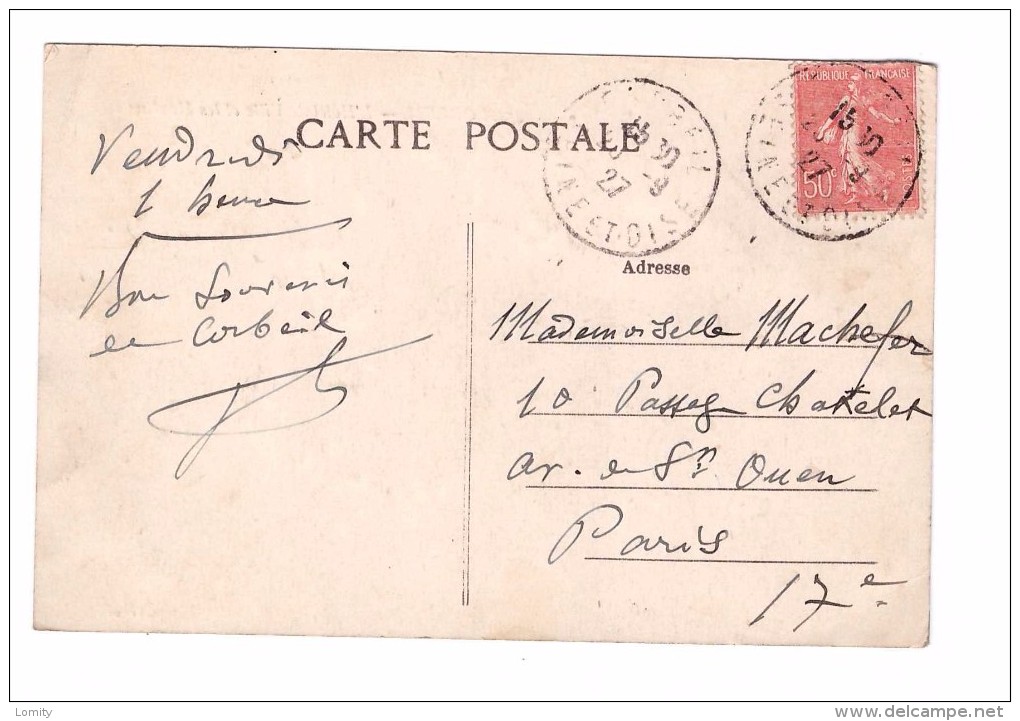 CARTE POSTALE
Vendredi
1 heure
Bon Souvenir
de Corbeil
CORBEIL
15 30
9
27
SEINE-ET-OISE
REPUBLIQUE FRANÇAISE
50c
15 30
9
27
Adresse
Mademoiselle Machefer
10 Passage Chatelet
av. de St Ouen
Paris
17e
Lomity
www.delcampe.net